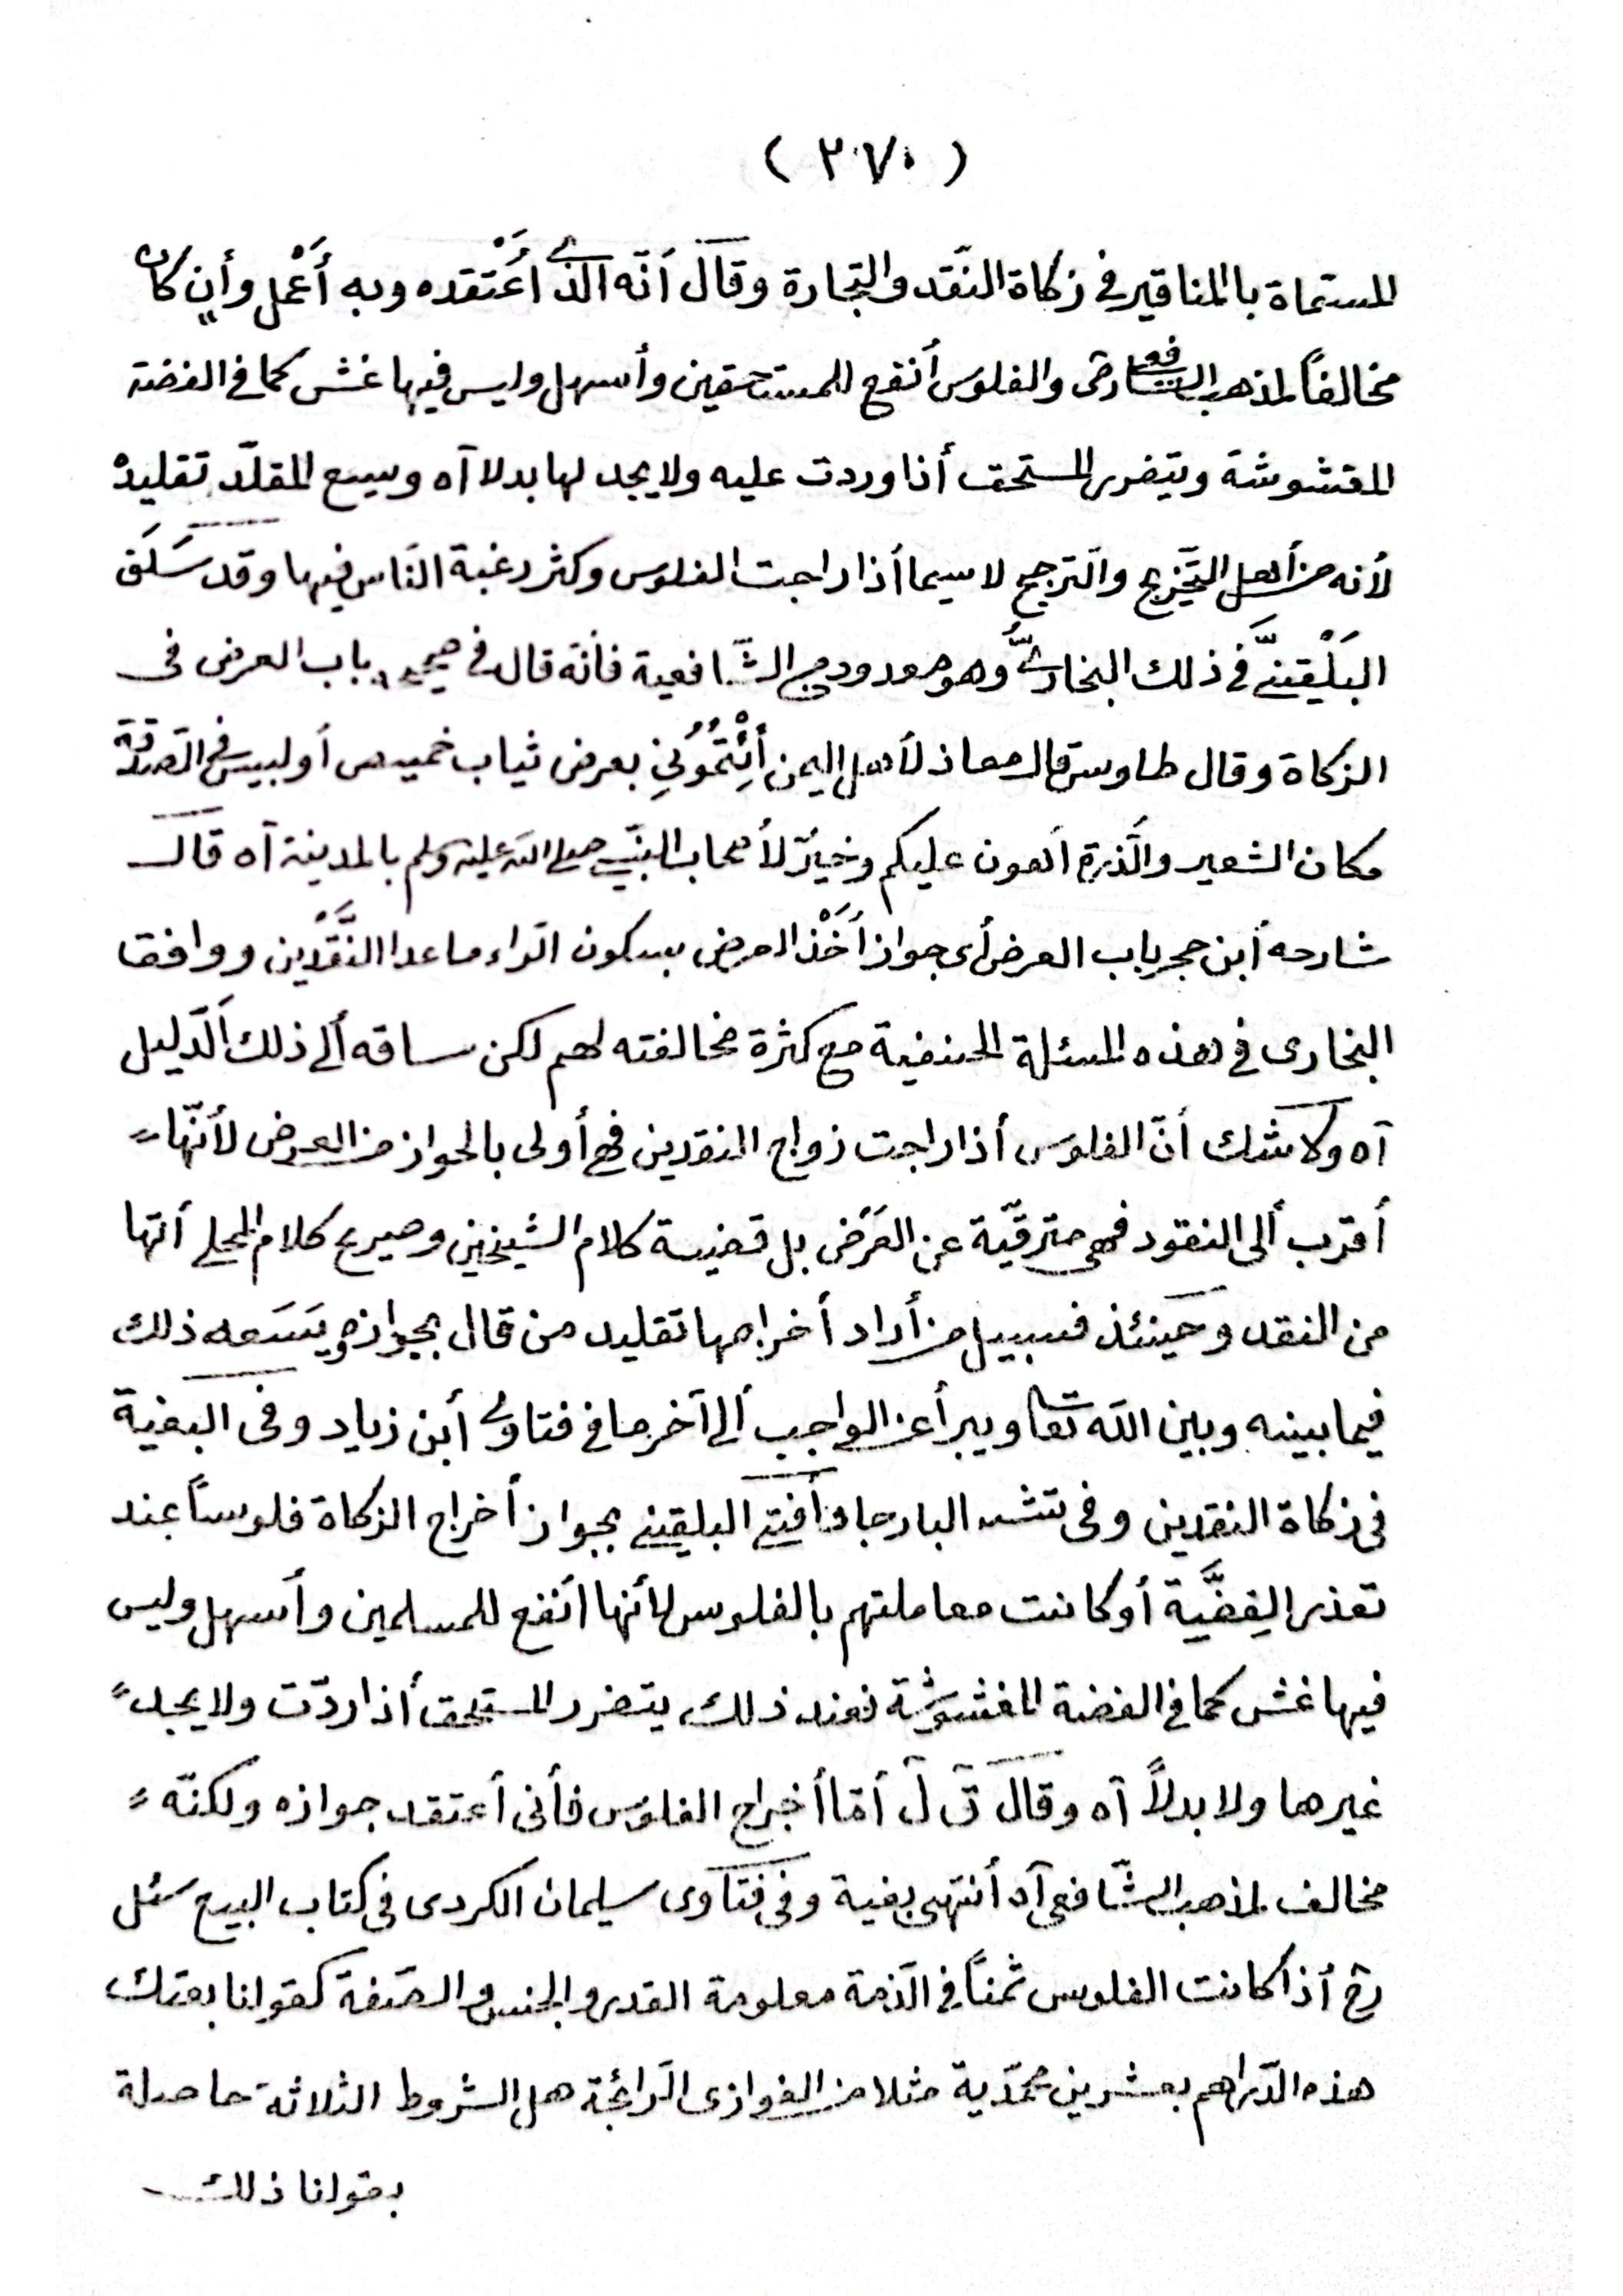 ( ٣٧٠ )
المسماة بالمناقير في زكاة النّقد والتجارة وقال أنّه الذي أعْتقده وبه أعْمل وأن كان
مخالفاً لمذهب الشافعي رض والفلوس أنفع للمستحقين وأسهل وليس فيها غش كما في الفضة
المغشوشة ويتضرر المستحق أذا وردت عليه ولا يجد لها بدلا آه ويسع المقلّد تقليده
لأنه من أهل التّخريج والتّرجيح لا سيما أذا راجت الفلوس وكثر رغبة النّاس فيها وقد سَلَفَ
البَلْقينيّ في ذلك البخاريّ وهو معدود من الشّافعية فأنّه قال في صحيحه باب العرض في
الزكاة وقال طاوس قال معاذ لأهل اليمن أئْتُمُوُنِي بعرض ثياب خميص أو لبيس في الصّدقة
مكان الشعير والّذرة أهون عليكم وخيرٌ لأصحاب النبي صلى الله عليه وسلم بالمدينة آه قال
شارحه أبن حجر باب العرض أي جواز أخْذ العرض بسكون الرّاء ما عدا النَّقْدين ووافق
البخاري في هذه المسئلة الحنفية مع كثرة مخالفته لهم لكن ساقه ألى ذلك الدّليل
آه ولا شك أنّ الفلوس أذا راجت زواج النقدين فهي أولى بالجواز من العرض لأنّها
أقرب ألى النقود فهي مترقيّة عن العَرَض بل قضية كلام الشيخين وصريح كلام المحلي أنّها
من النقد وحينئذ فسبيل من أراد أخراجها تقليد من قال بجوازه ويَسَعه ذلك
فيما بينه وبين الله تعا ويبرأ عن الواجب ألى آخر ما في فتاوى أبن زياد وفي البغية
في زكاة النقدين وفي تتش البارعا وأفتى البلقيني بجواز أخراج الزكاة فلوساً عند
تعذر الفِضَّية أو كانت معاملتهم بالفلوس لأنها أنفع للمسلمين وأسهل وليس
فيها غش كما في الفضة المغشوشة فعند ذلك يتضرر المستحق أذا ردّت ولا يجد
غيرها ولا بدلاً آه وقال ق ل أمّا أخراج الفلوس فأنى أعتقد جوازه ولكنّه
مخالف لمذهب الشّافعي آه أنتهى بغية وفي فتاوى سليمان الكردي في كتاب البيع سئل
رح أذا كانت الفلوس ثمناً في الّذمة معلومة القدر والجنس والصّفة كقولنا بعتك
هذه الدّراهم بعشرين محمّدية مثلا من الغوازى الّرائجة هل الشروط الثلاثة حاصلة
بقولنا ذلك